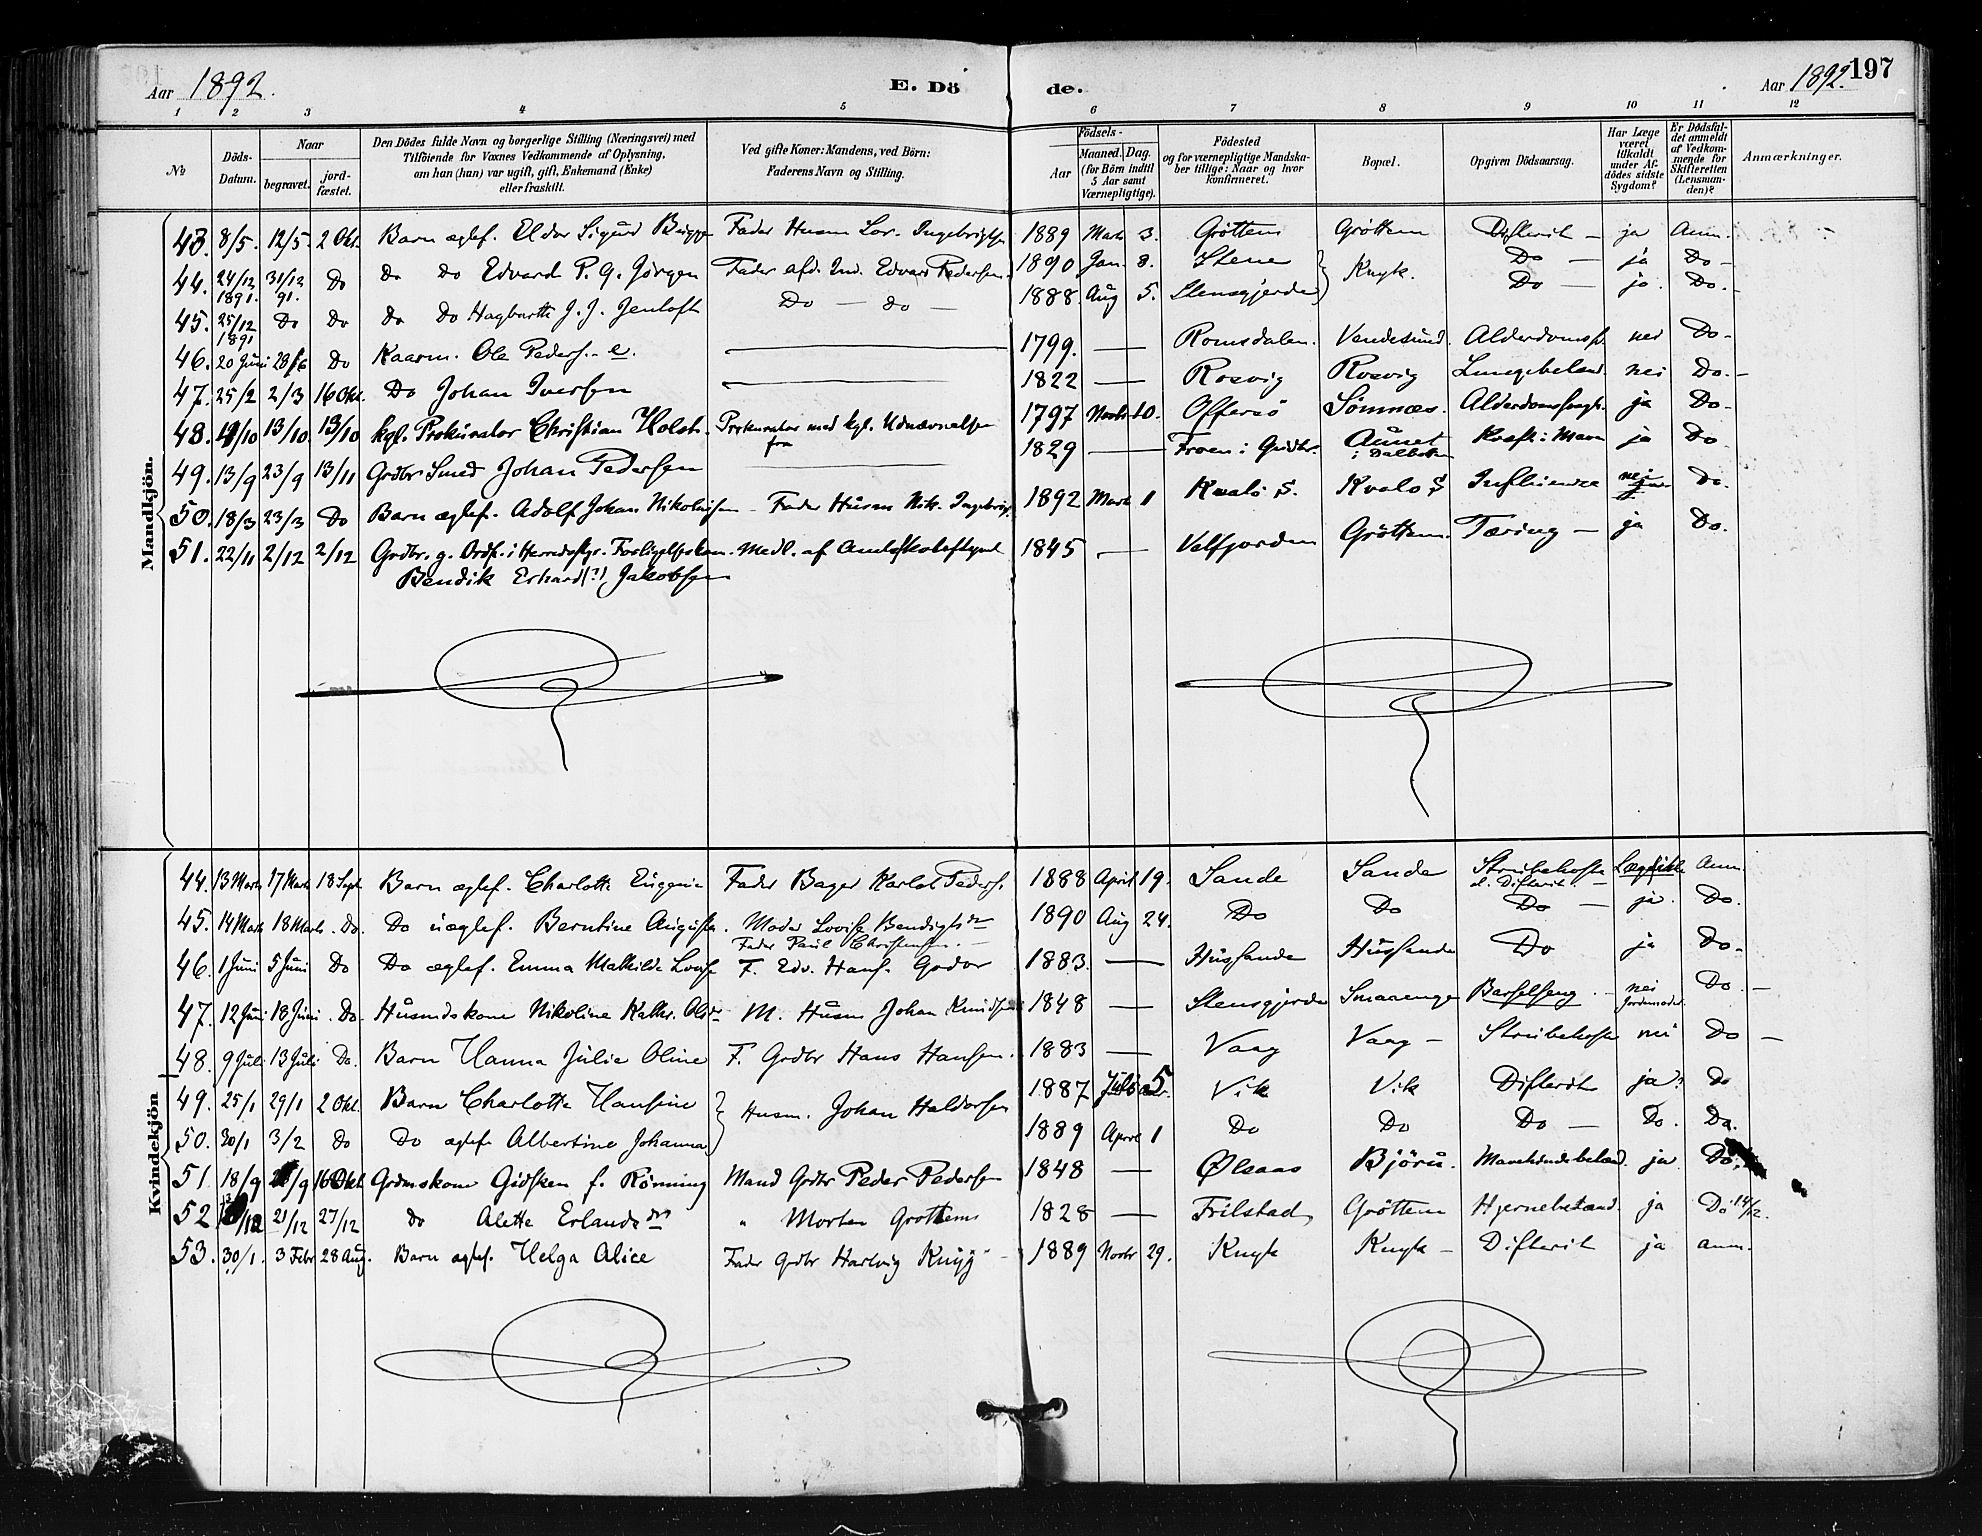 Aar 1892.
E. Dö
de.
Aar 1892.
197
1 2 3 4 5 6 7 8 9 10 11 12
№
Döds-Datum.
Naar
begravet.
jord-fæstet.
Den Dödes fulde Navn og borgerlige Stilling (Næringsvei) med
Tilföiende for Voxnes Vedkommende af Oplysning,
om han (hun) var ugift, gift, Enkemand (Enke)
eller fraskilt.
Ved gifte Koner: Mandens, ved Börn:
Faderens Navn og Stilling.
Födsels-
Aar
Maaned. Dag.
(for Börn indtil
5 Aar samt
Værnepligtige).
Födested
og for værnepligtige Mandska-
ber tillige: Naar og hvor
konfirmeret.
Bopæl.
Opgiven Dödsaarsag.
Har Læge
været
tilkaldt
under Af-
dödes sidste
Sygdom?
Er Dödsfal-
det anmeldt
af Vedkom-
mende for
Skifteretten
(Lensman-
den)?
Anmærkninger.
Mandkjön.
43. 8/5. 12/5. 2 Okt. Barn ægtef. Eldor Sigurd Brigge Fader Husm Lor. Ingebrigtsen 1889 Marts 3. Gröttem Gröttem Difterit – ja Anm.
44. 24/12 1891. 31/12 91. Do Do Do Edvard P. G. Jörgen Fader afd. Ind. Edvard Pedersen. 1890 Jan. 8. Stene Knyk. Do – ja Do –
45. 25/12 1891 Do Do Do Do Hagbarth J. J. Jentoft Do – do – 1888. Aug 5. Stensgjerde Do – ja. Do. –
46. 20 Juni 28/6 Do Kaarm. Ole Peders. – e. 1799. — Romsdalen. Vendesund. Alderdomss. nei Do –
47. 25/2 2/3 16 Okt. Do Johan Iversen 1822 — Rosvig Rosvig Lungebetænd. nei Do. –
48. 4/10 13/10. 13/10 kgl. Prokurator Christian Holst. Prokurator med kgl. Udnævnelse 1797 Novbr 10. Offersö Sömnæs. Alderdomssvagh. ja Do –
49. 13/9 23/9 13/11 Grdbr Smed Johan Pedersen 1829 — Froen i Gudbr. Aunet i Dalbotten Kræft i Maven ja Do.
50. 18/3 23/3 Do Barn ægtef. Adolf Johan Nikolaisen – Fader Husm Nik. Ingebrigts. 1892 Marts 1 Kvalö S. Kvalo S Influenze nei Do.
51. 22/11 2/12 2/12 Grdbr. g. Ordf. i Herredsstyr. Forligelseskom. Medl. af Amtsskolestyret 1845 — Velfjorden Gröttem. Tæring – ja Do.
Bendik Erhard (?) Jakobsen
Kvindekjön
44. 13 Marts 17 Marts 18 Sept Barn ægtef. Charlotte Eugenie Fader Bager Karlot Peders. 1888 April 19. Sande Sande Strubehoste el. Difterit – Læge ikke Anm.
45. 14 Marts 18 Marts. Do. Do uægtef. Berntine Augusta. Moder Lovise Bendigtsdtr 1890 Aug 24. Do Do Do – ja. Do.
Fader Paul Christensen. –
46. 1 Juni 5 Juni Do Do ægtef. Emma Mathilde Lovise F. Edv. Hans. Gader 1883. — Hussande Hussande Do ja Do –
47. 12 Juni 18 Juni. Do. Husmdskone Nikoline Kathr. Olsdtr M. Husm Johan Knudsen 1848 — Stensgjerde Smaaenge Barselseng. – nei Jordemoder. Do. –
48. 9 Juli 13 Juli Do. Barn Hanna Julie Oline F. Grdbr Hans Hansen. 1883 — Vaag Vaag – Strubehoste nei Do –
49. 25/1 29/1 2 Okt. Barn Charlotte Hansine Husm. Johan Haldorsen 1887 Juli 5 Vik Vik Difterit ja. Do
50. 30/1 3/2 Do Do ægtef. Albertine Johanna 1889 April 1 Do Do Do – Do. Do.
51. 18/9 /9 16 Okt Grdmskone Gidsken f. Rönning Mand Grdbr Peder Pedersen 1848 — Ølsaas Björu. Mavebindebetænd. ja Do.
52 /12 21/12 27/12 do Alette Erlandsdtr " Morten Grottem 1828 — Frilstad, Gröttem Hjernebetænd. ja Do 14/12.
53. 30/1. 3 Febr 28 Aug. Barn ægtef. Helga Alice Fader Grdbr Hartvig Knyg – 1889 Novbr 29. Knyk Knyk – Difterit ja anm.